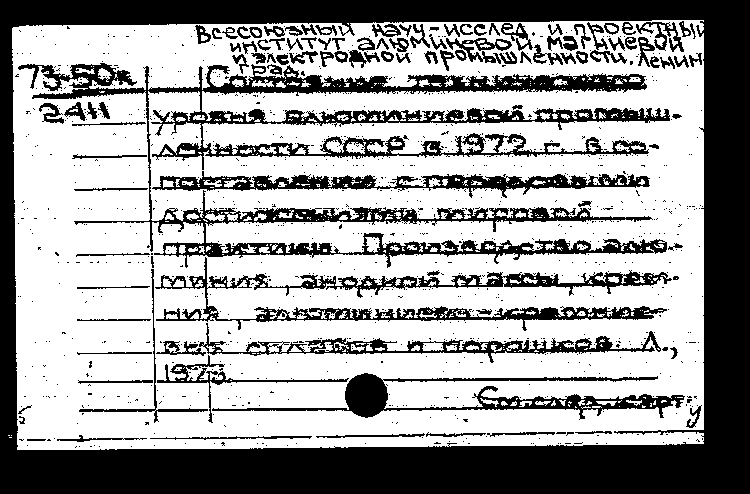 Всесоюзный науч-исслед. и проектный
институт алюминиевой, магниевой
и электродной промышленности. Ленин-
град.
73-50к
2411
Состояние технического
уровня алюминиевой промыш-
ленности СССР в 1972 г. в со-
поставлении с передовыми
достижениями мировой
практики. Производство алю-
миния, анодной массы, крем-
ния, алюминиево-кремние-
вых сплавов и порошков. Л.,
1973.
См. след. карт.
б
у